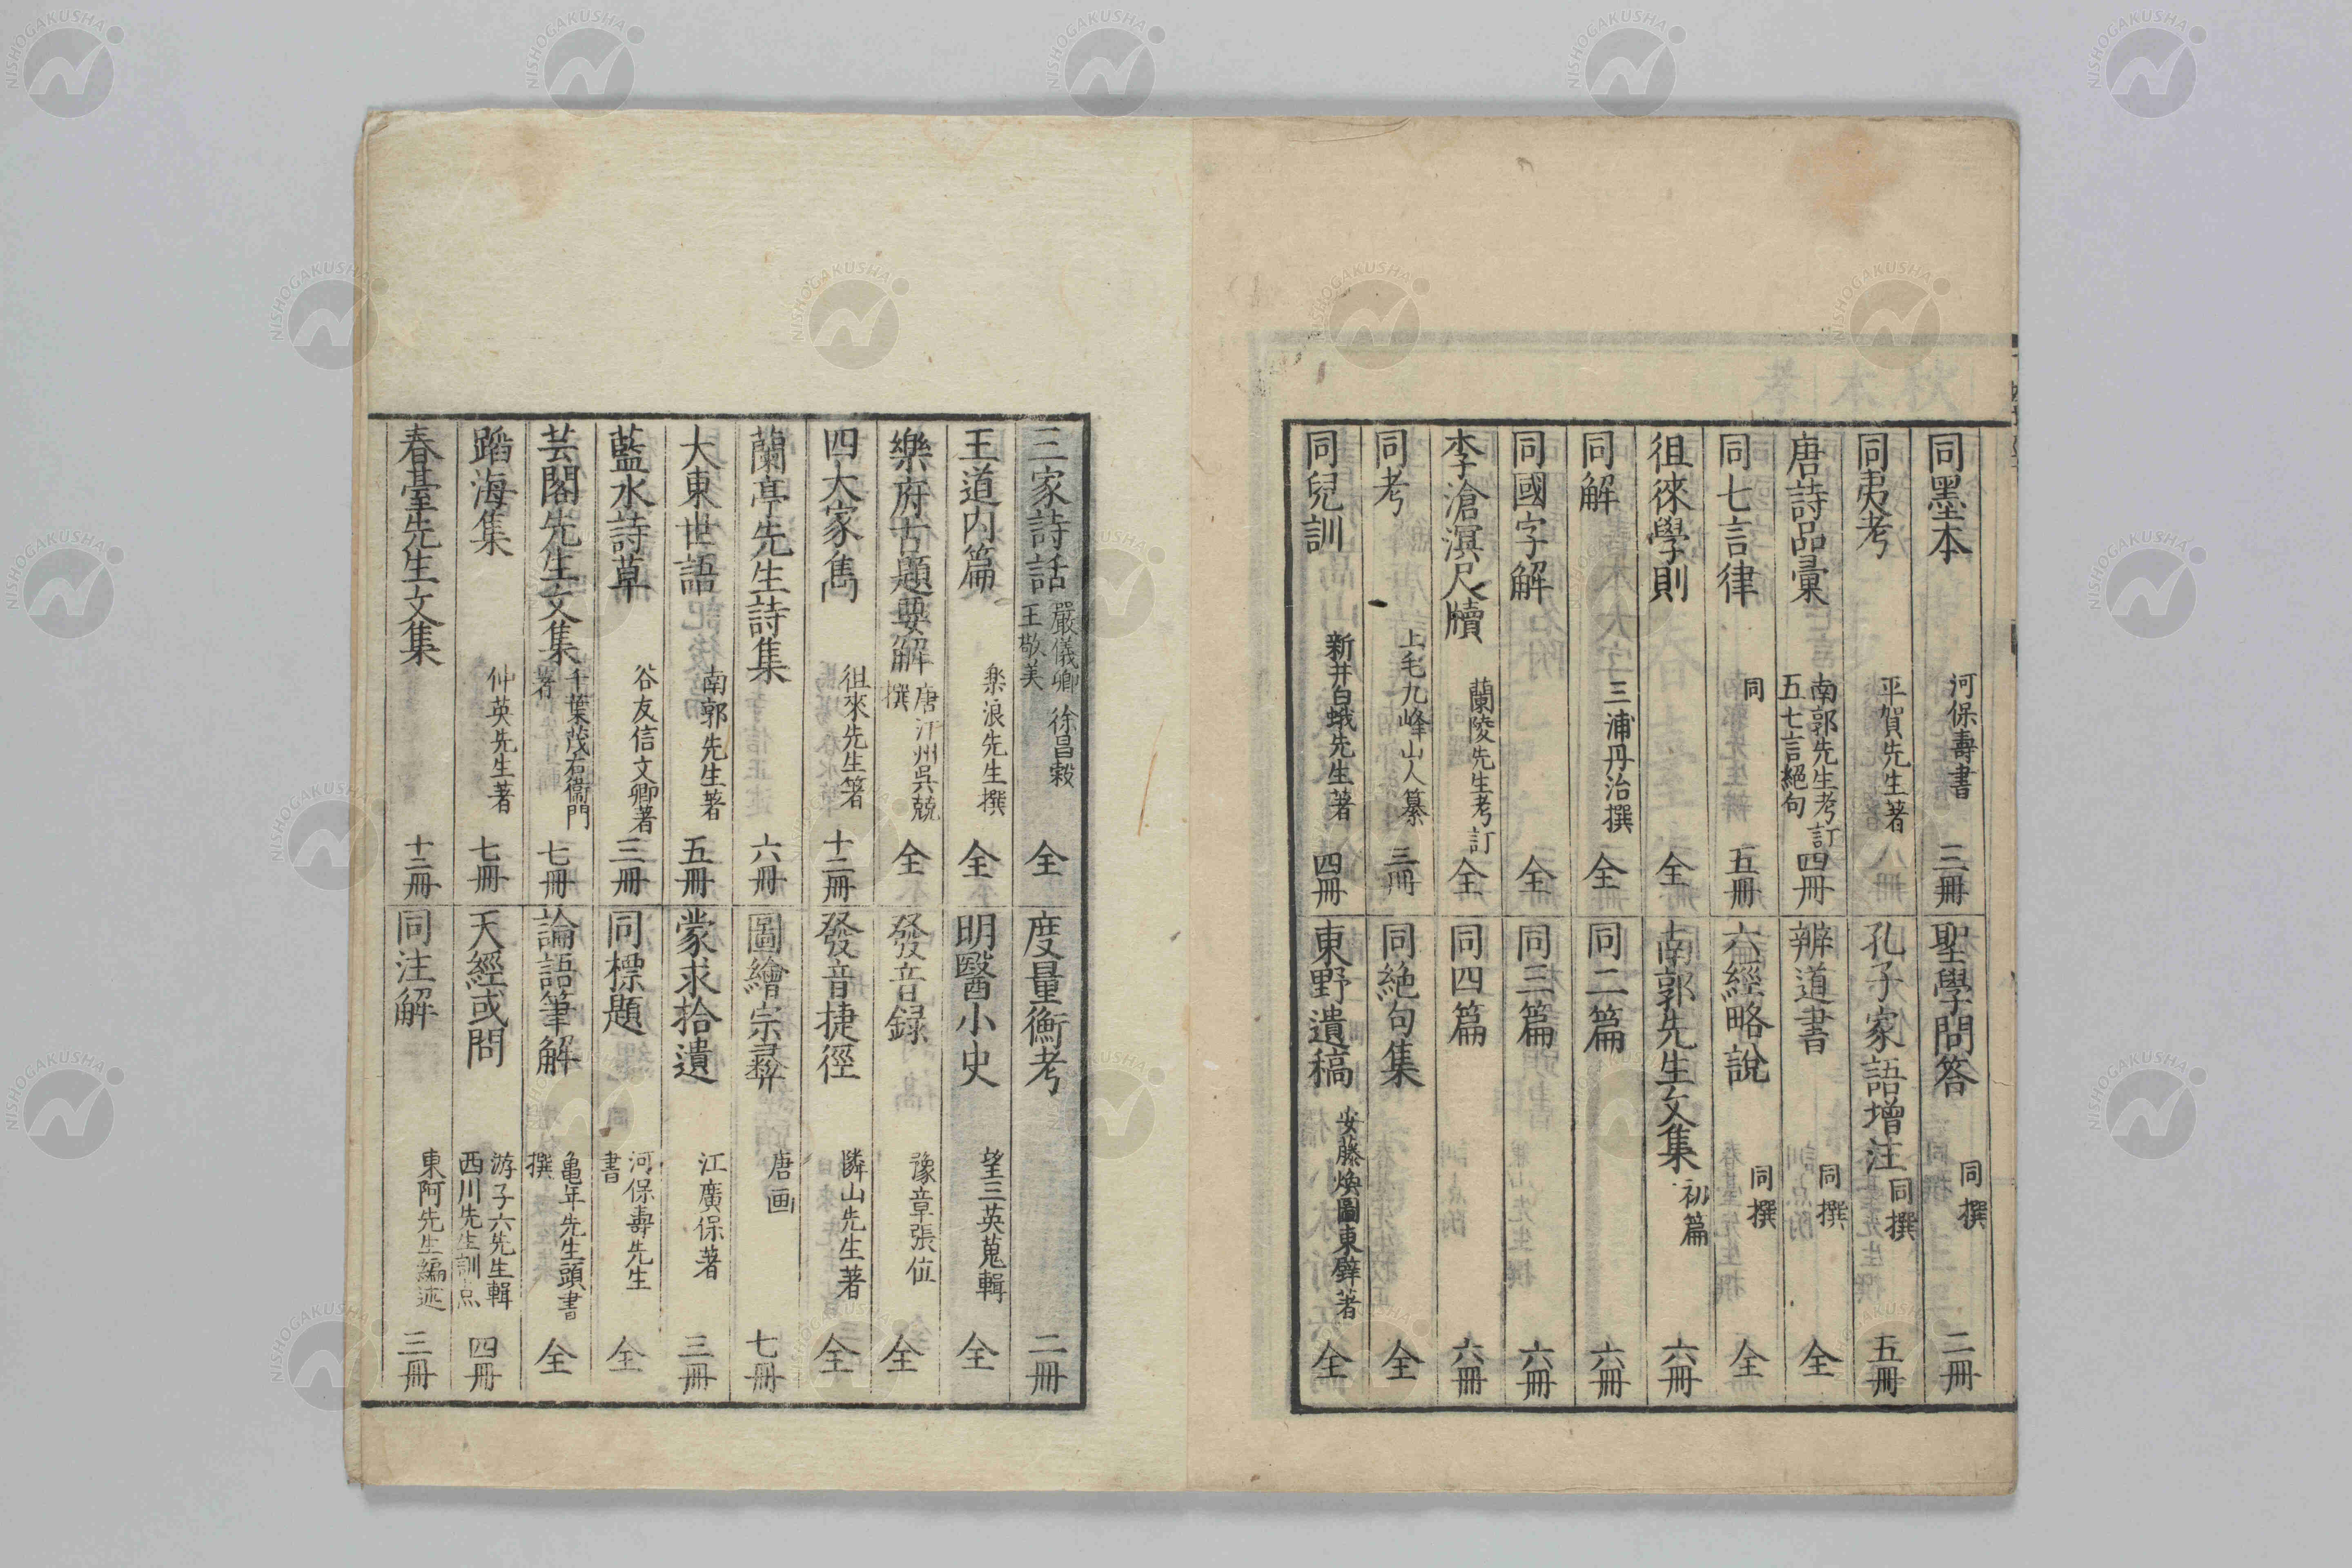 同墨本 河保壽書 三冊
同夷考 平賀先生著 八冊
唐詩品彙 南郭先生考訂 五七言絕句 四冊
同七言律 同 五冊
徂徠學則 全
同解 三浦丹治撰 全
同國字解 全
李滄溟尺牘 蘭陵先生考訂 全
同考 上毛九峰山人纂 三冊
同兒訓 新井白蛾先生著 四冊
聖學問答 同撰 二冊
孔子家語增注 同撰 五冊
辨道書 同撰 全
六經略說 同撰 全
南郭先生文集 初篇 六冊
同二篇 六冊
同三篇 六冊
同四篇 六冊
同絕句集 全
東野遺稿 安藤煥圖東壁著 全
三家詩話 嚴儀卿 徐昌穀 王敬美 全
王道内篇 楽浪先生撰 全
樂府古題要解 唐汴州呉兢撰 全
四大家雋 徂來先生著 十二冊
蘭亭先生詩集 六冊
大東世語 南郭先生著 五冊
藍水詩草 谷友信文卿著 三冊
芸閣先生文集 千葉茂右衛門著 七冊
蹈海集 仲英先生著 七冊
春臺先生文集 十二冊
度量衡考 二冊
明醫小史 望三英蒐輯 全
發音録 豫章張位 全
發音捷徑 隣山先生著 全
圖繪宗彝 唐画 七冊
蒙求拾遺 江廣保著 三冊
同標題 河保壽先生書 全
論語筆解 亀年先生頭書撰 全
天經或問 游子六先生輯 西川先生訓点 四冊
同注解 東阿先生編述 三冊
NISHOGAKUSHA